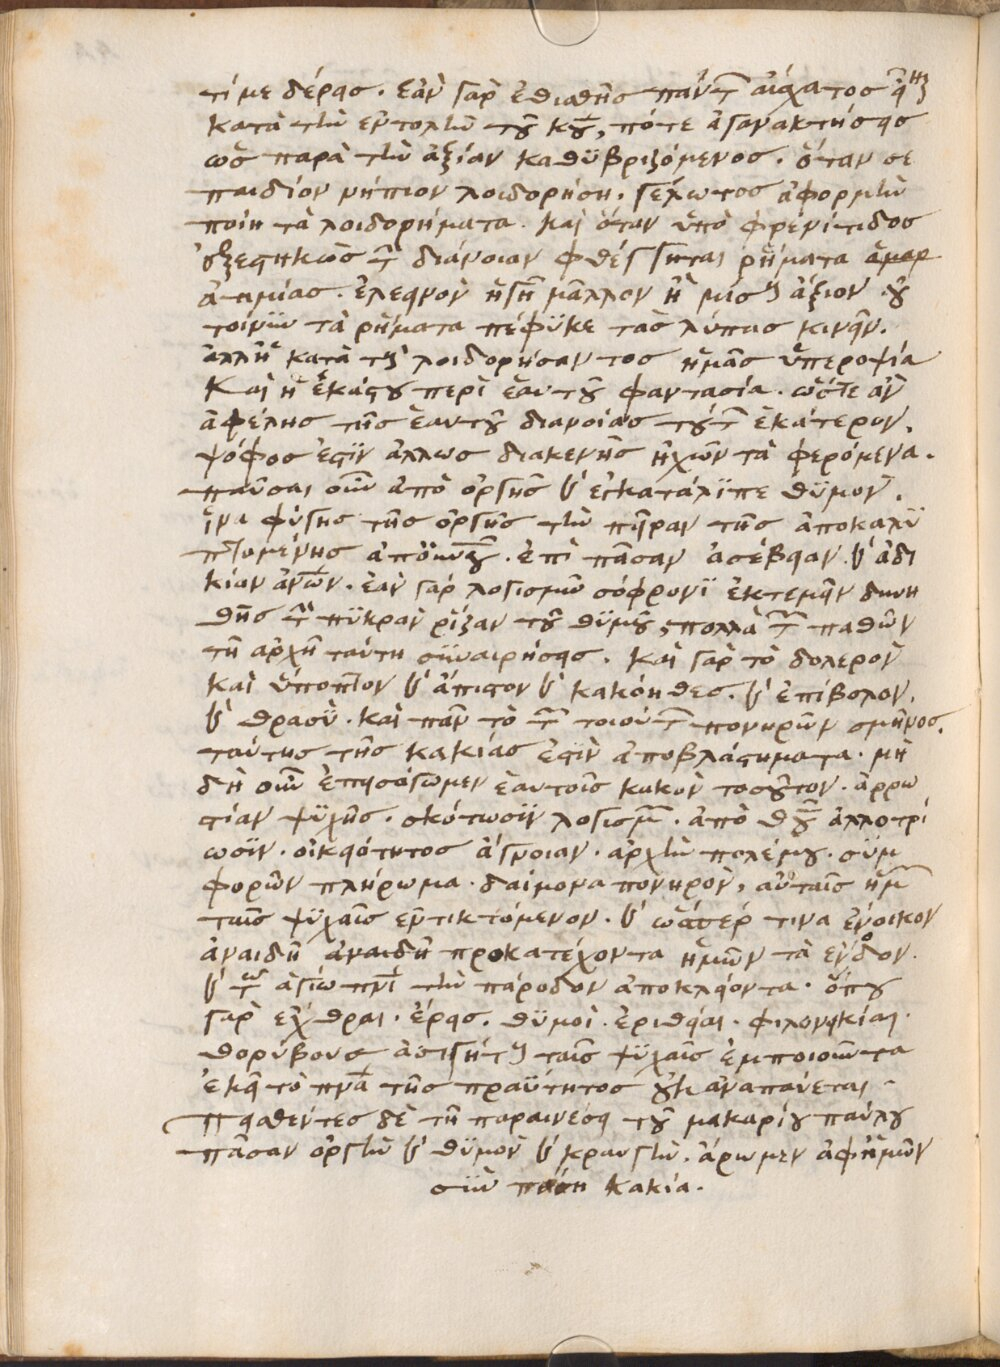 τί με δέρεις. ἐὰν γὰρ ἐθισθῆς πάντ(ων) ἔσχατος εἶν(αι)
κατὰ τὴν ἐντολὴν τοῦ κυ, πότε ἀγανακτήσεις
ὡς παρὰ τὴν ἀξίαν καθϋβριζόμενος. ὅταν σε
παιδίον νήπιον λοιδορήση. γέλωτος ἀφορμὴν
ποίη τὰ λοιδορήματα. καὶ ὅταν ὑπὸ φρενίτιδος
ἐξεστηκὼς τ(ὴν) διάνοιαν φθέγγηται ῥήματα
ἀτιμίας. ἐλεεινὸν ἡγῆ μᾶλλον ἢ μίσους ἄξιον. οὐ
τοίνϋν τὰ ρήματα πέφϋκε τὰς λύπας κινεῖν.
ἀλλ' ἡ κατὰ τοῦ λοιδορήσαντος ἡμᾶς ὑπεροψία
καὶ ἡ ἑκάστου περὶ ἑαυτοῦ φαντασία. ὥστε ἂν
ἀφέλης τῆς ἑαυτοῦ διανοίας τούτ(ων) ἑκάτερον.
ψόφος ἐστϊν ἄλλως διακενῆς ἠχῶν τὰ φερόμενα.
παῦσαι οὖν ἀπὸ ὀργῆς καὶ ἐγκατάλϊπε θϋμόν.
ἵνα φύγης τῆς ὀργῆς τὴν πεῖραν τῆς ἀποκαλϋ
πτομένης ἀπ' οὐνοῦ. ἐπὶ πᾶσαν ἀσέβειαν καὶ ἀδι
κίαν ἀνων. ἐὰν γὰρ λογισμῶ σόφρονϊ ἐκτεμεῖν δυνη
θῆς τ(ὴν) πϋκρὰν ρίζαν τοῦ θϋμοῦ, πολλὰ τ(ῶν) παθῶν
τῆ αρχῆ ταύτη σϋναιρήσεις. καὶ γὰρ τὸ δολερὸν
καὶ ὕποπτον καὶ ἄπιστον καὶ κακόηθες. καὶ ἐπίβολον.
καὶ θρασϋ. καὶ πᾶν τὸ τ(ῶν) τοιούτ(ων) πονηρῶν σμῆνος.
ταύτης τῆς κακίας ἐστϊν ἀποβλάστηματα. μὴ
δὴ οὖν ἐπησάγωμεν ἑαυτοῖς κακὸν τοσοῦτον. ἀρρω
στίαν ψϋχῆς. σκότωσϊν λογισμ(ῶν). ἀπὸ θυ ἀλλοτρί
ωσϊν. οἰκειότητος ἄγνοιαν. ἀρχὴν πολέμου. σϋμ
φορῶν πλήρωμα. δαίμονα πονηρὸν, αὐταῖς ἡμ(ῶν)
ταῖς ψϋχαῖς ἐντικτόμενον. καὶ ὥσπερ τινα ἔνοικον
ἀναιδῆ ἀναιδῆ προκατέχοντα ἡμῶν τὰ ἔνδον.
καὶ τῶ ἁγίω πνι τὴν πάροδον ἀποκλείοντα. ὅπου
γὰρ ἔχθραι. ἔρεις. θϋμοὶ. ἐριθεῖαι. φιλονεικίαι.
θορύβους ἀσιγήτους ταῖς ψϋχαῖς ἐμποιοῦντα
ἐκεῖ τὸ πνα τῆς πραΰτητος οὐκ ἀναπαύεται.
Πεισθέντες δὲ τῆ παραινέσει τοῦ μακαρίου παύλου
πᾶσαν ὀργὴν καὶ θϋμὸν καὶ κραυγὴν. ἄρωμεν ἀφ' ἡμῶν
σϋν πάση κακία.